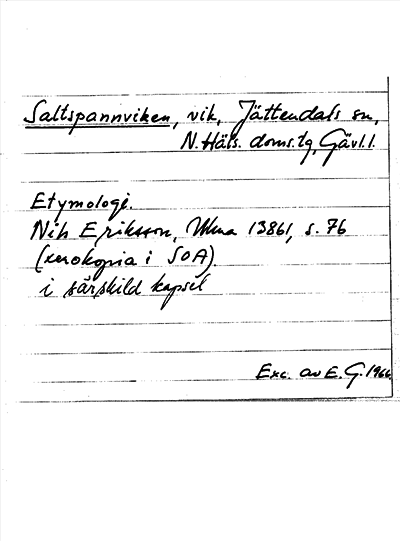 Saltspannviken, vik, Jättendals sn,
N. Häls. doms.tg, Gävl.l.
Etymologi.
Nils Eriksson, Ulma 13861, s. 76
(xerokopia i SOA)
i särskild kapsel
Exc. av E. G. 1966